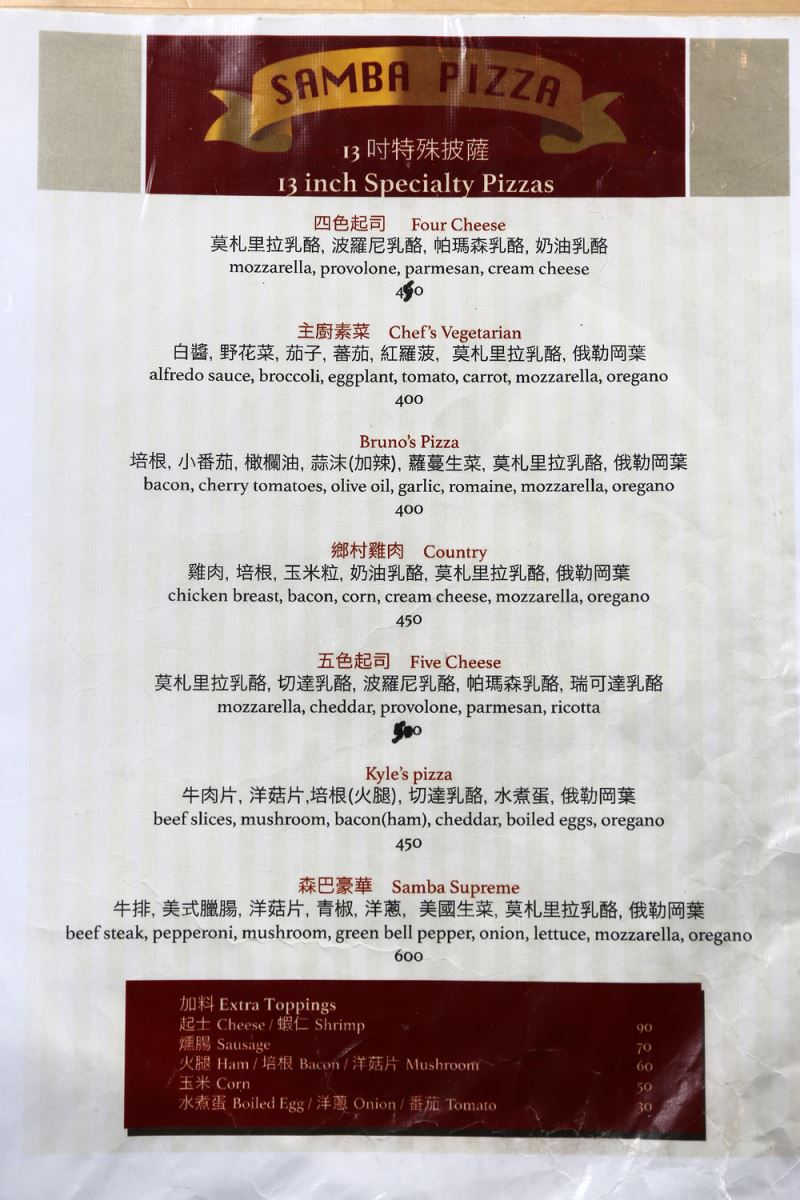 SAMBA PIZZA
13 吋特殊披薩
13 inch Specialty Pizzas
四色起司 Four Cheese
莫札里拉乳酪, 波羅尼乳酪, 帕瑪森乳酪, 奶油乳酪
mozzarella, provolone, parmesan, cream cheese
450
主廚素菜 Chef's Vegetarian
白醬, 野花菜, 茄子, 蕃茄, 紅羅菠, 莫札里拉乳酪, 俄勒岡葉
alfredo sauce, broccoli, eggplant, tomato, carrot, mozzarella, oregano
400
Bruno's Pizza
培根, 小番茄, 橄欖油, 蒜沫(加辣), 蘿蔓生菜, 莫札里拉乳酪, 俄勒岡葉
bacon, cherry tomatoes, olive oil, garlic, romaine, mozzarella, oregano
400
鄉村雞肉 Country
雞肉, 培根, 玉米粒, 奶油乳酪, 莫札里拉乳酪, 俄勒岡葉
chicken breast, bacon, corn, cream cheese, mozzarella, oregano
450
五色起司 Five Cheese
莫札里拉乳酪, 切達乳酪, 波羅尼乳酪, 帕瑪森乳酪, 瑞可達乳酪
mozzarella, cheddar, provolone, parmesan, ricotta
500
Kyle's pizza
牛肉片, 洋菇片,培根(火腿), 切達乳酪, 水煮蛋, 俄勒岡葉
beef slices, mushroom, bacon(ham), cheddar, boiled eggs, oregano
450
森巴豪華 Samba Supreme
牛排, 美式臘腸, 洋菇片, 青椒, 洋蔥, 美國生菜, 莫札里拉乳酪, 俄勒岡葉
beef steak, pepperoni, mushroom, green bell pepper, onion, lettuce, mozzarella, oregano
600
加料 Extra Toppings
起士 Cheese / 蝦仁 Shrimp 90
燻腸 Sausage 70
火腿 Ham / 培根 Bacon / 洋菇片 Mushroom 60
玉米 Corn 50
水煮蛋 Boiled Egg / 洋蔥 Onion / 番茄 Tomato 30